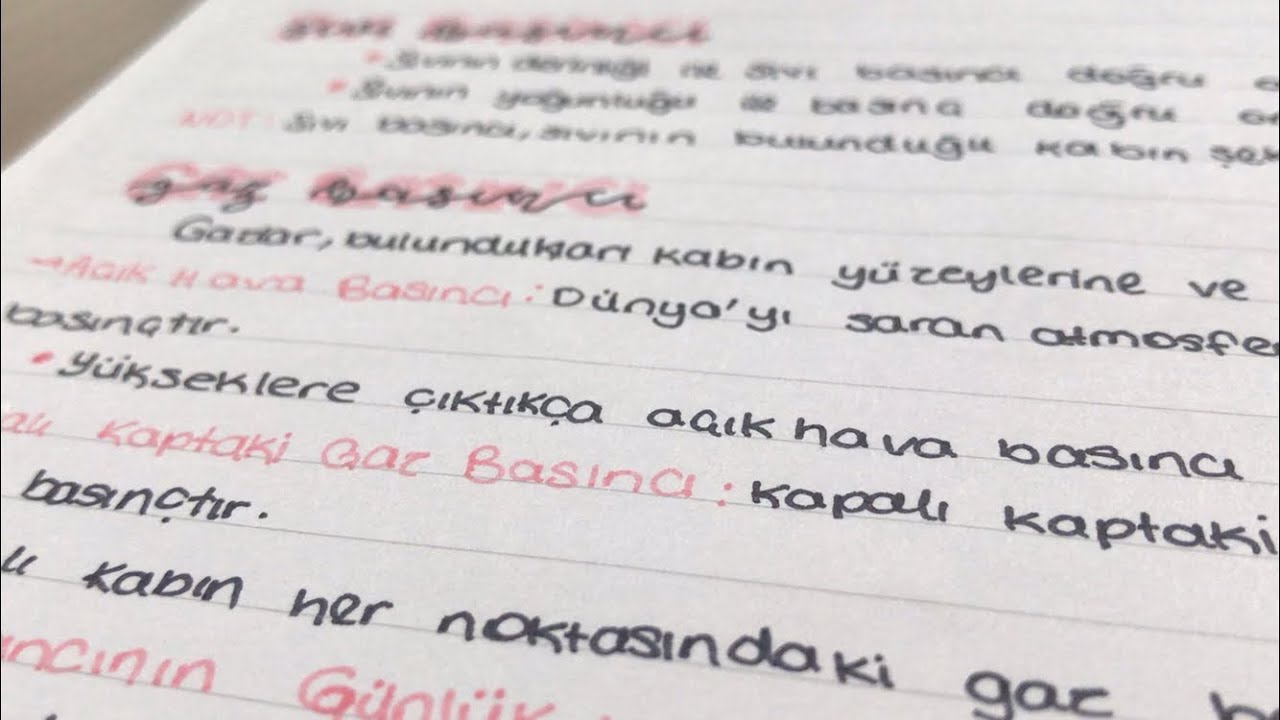 Sıvı Basıncı
• Sıvının derinliği ile sıvı basıncı doğru
• Sıvının yoğunluğu ile basınç doğru
NOT: Sıvı basıncı, sıvının bulunduğu kabın
Gaz Basıncı
Gazlar, bulundukları kabın yüzeylerine ve
→Açık Hava Basıncı: Dünya'yı saran atmosfe
basınçtır.
• Yükseklere çıktıkça açık hava basıncı
alı Kaptaki Gaz Basıncı: Kapalı kaptaki
basınçtır.
lı kabın her noktasındaki gaz
ıncının Günlük